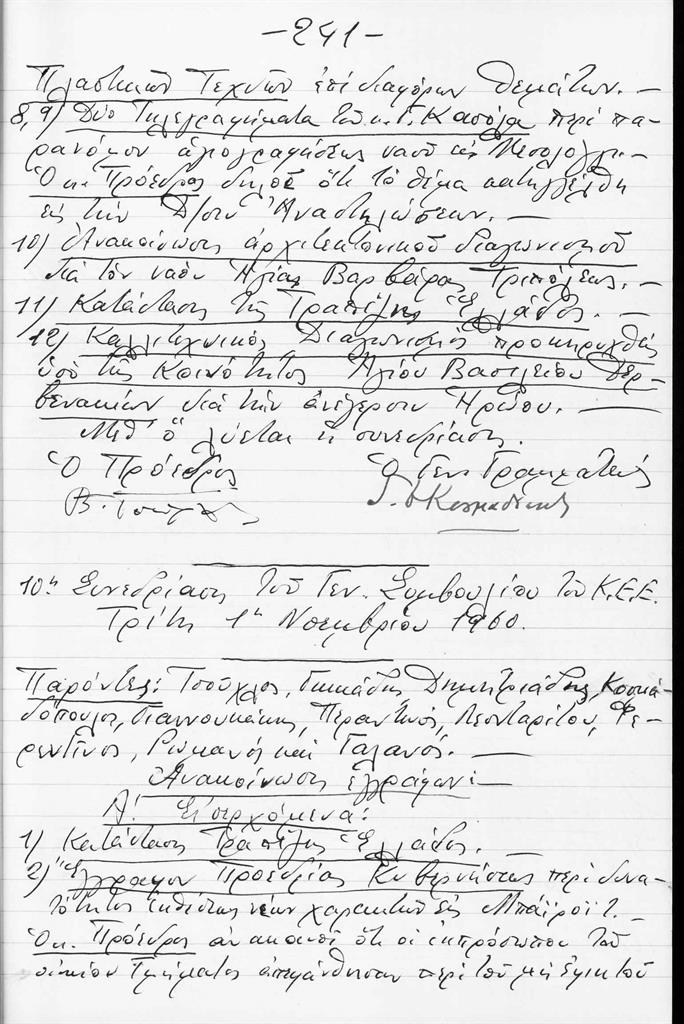 -241-
Πλαστικῶν Τεχνῶν ἐπί διαφόρων θεμάτων. —
8,9) Δύο Τηλεγραφήματα τοῦ κ. Γ. Κασόλα περί πα-
ρανόμου ἁγιογραφήσεως ναοῦ εἰς Μεσολόγγι.-
Ὁ κ. Πρόεδρος δηλοῖ ὅτι τό θέμα κατηγγέλθη
εἰς τήν Δ/σιν Ἀναστηλώσεων. —
10) Ἀνακοίνωσις ἀρχιτεκτονικοῦ διαγωνισμοῦ
διά τόν ναόν Ἁγίας Βαρβάρας Τριπόλεως. —
11) Κατάστασις τῆς Τραπέζης Ἑλλάδος. —
12) Καλλιτεχνικός Διαγωνισμός προκηρυχθείς
ὑπό τῆς Κοινότητος Ἁγίου Βασιλείου Δερ-
βενακίων διά τήν ἀνέγερσιν Ἡρώου. —
Μεθ' ὅ λύεται ἡ συνεδρίασις.
Ὁ Πρόεδρος Ὁ Γεν. Γραμματεύς
10η Συνεδρίασις τοῦ Γεν. Συμβουλίου τοῦ Κ.Ε.Ε.
Τρίτη 1η Νοεμβρίου 1960.
Παρόντες: Τσούχλος, Γκικάδης, Δημητριάδης, Κοσμα-
δόπουλος, Γιαννουκάκης, Περαντινός, Λεονταρίτου, Φε-
ρεντῖνος, Ρωμανός καί Γαλανός. —
Ἀνακοίνωσις ἐγγράφων:-
Α! Εἰσερχόμενα:
1) Κατάστασις Τραπέζης Ἑλλάδος. —
2) Ἔγγραφον Προεδρίας Κυβερνήσεως περί δυνα-
τότητος ἐκθέσεως νέων χαρακτῶν εἰς Μπάϊροϊτ. —
Ὁ κ. Πρόεδρος ἀνακοινοῖ ὅτι οἱ ἐκπρόσωποι τοῦ
οἰκείου Τμήματος ἀπεφάνθησαν περί τοῦ μή ἐφικτοῦ